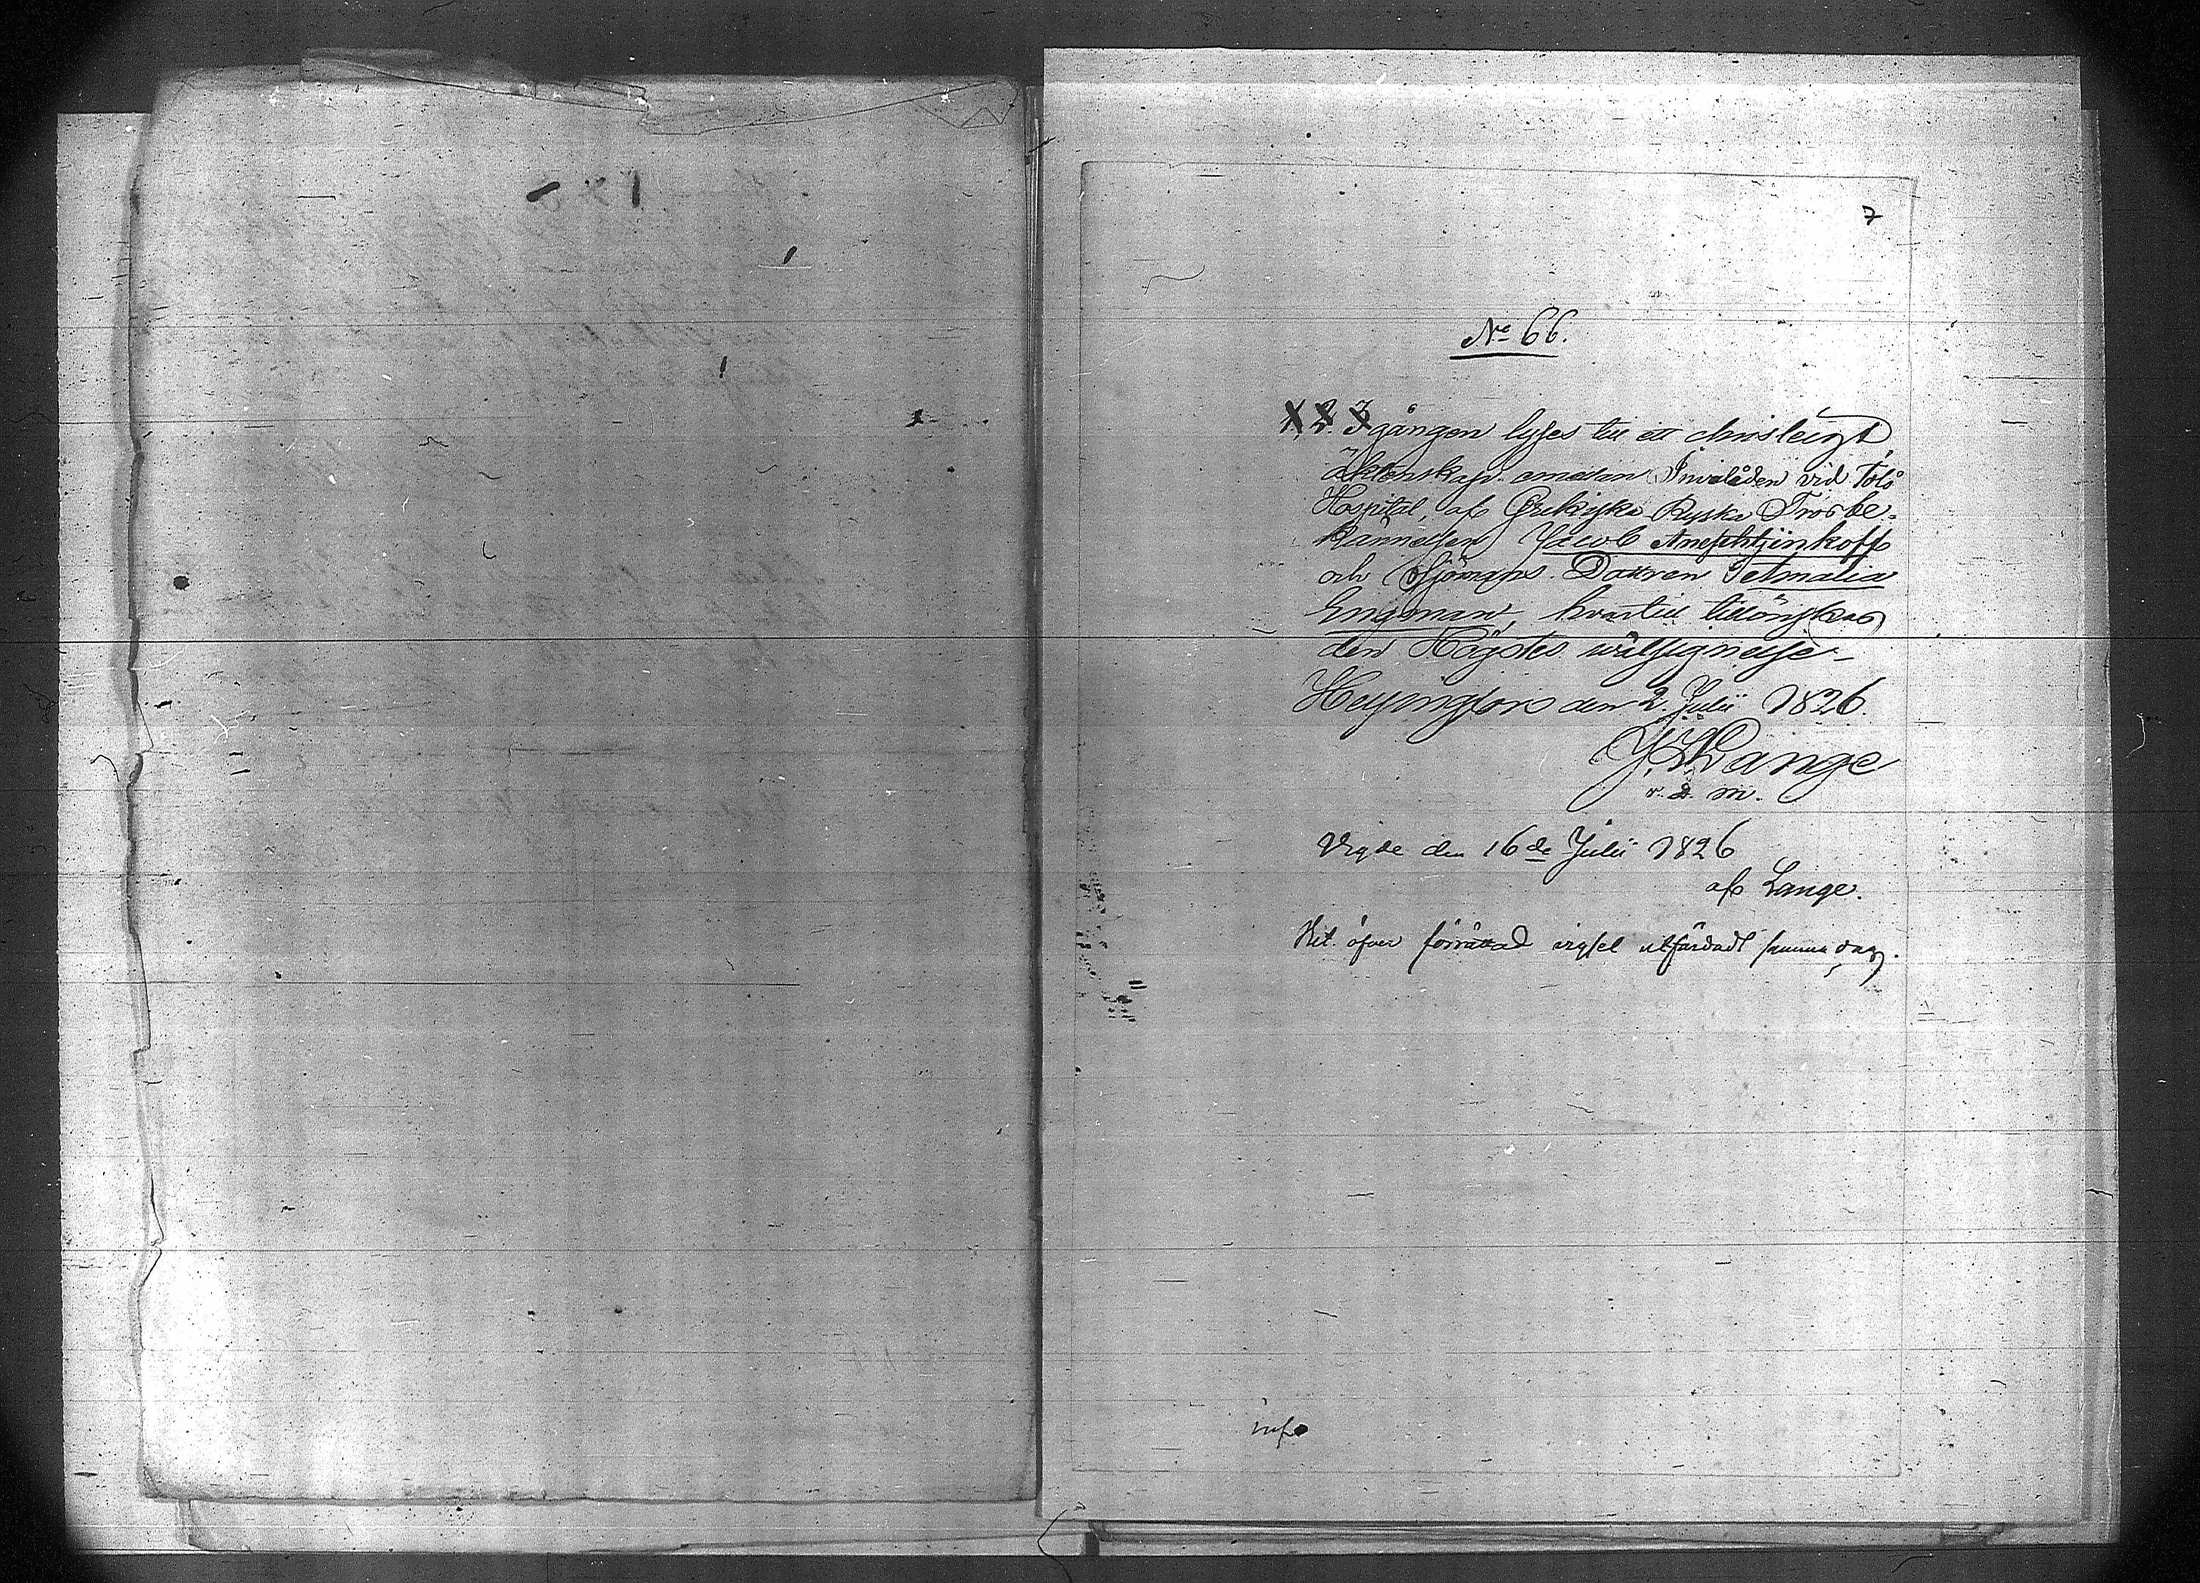 7
No 66.
1. 2. 3 gången lyses till ett christeligt
äktenskap emellan Invaliden vid Tölö
Hospital, af Grekiska Ryska Trosbe-
kännelsen Jacob Anephtjinkoff
och Sjömans Dottren Amalia
Engman, hvartill tillönskas
den Högstes wälsignelse.
Helsingfors den 2 Julii 1826.
Lange
v. D. m.
Vigde den 16de Julii 1826
af Lange.
öfver förrättad vigsel utfärdadt samma dag.